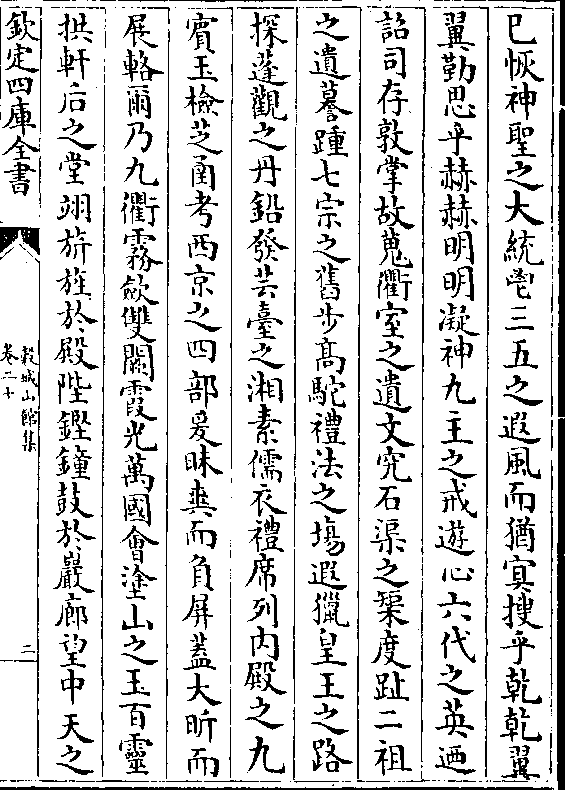 已恢神聖之大統軼三五之遐風而猶㝠搜乎乾乾翼
翼勒思乎赫赫明明凝神九主之戒遊心六代之英迺
詔司存敦掌故蒐衢室之遺文究石渠之榘度趾二祖
之遺謩踵七宗之舊步髙駝禮法之塲遐獵皇王之路
探蓬觀之丹鉛發芸臺之湘素儒衣禮席列内殿之九
賔玉檢芝函考西京之四部爰昧爽而負屏葢大昕而
展輅爾乃九衢霧歛雙闕霞光萬國㑹塗山之玉百靈
拱軒后之堂翊旂旌於殿陛鏗鐘鼓於巖廊望中天之
欽定四庫全書
榖城山館集
卷二十
二